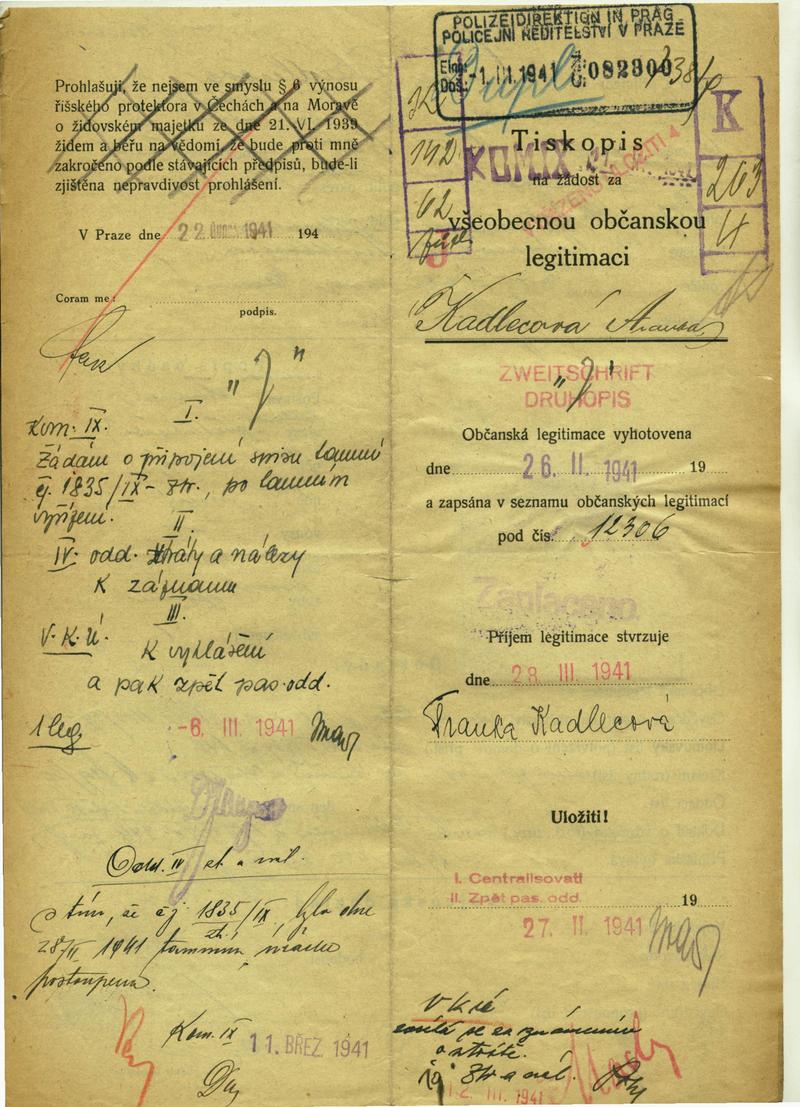 Prohlašuji, že nejsem ve smyslu § 6 výnosu
říšského protektora v Čechách a na Moravě
o židovském majetku ze dne 21. VI. 1939
židem a běřu na vědomí, že bude proti mně
zakročeno podle stávajících předpisů, bude-li
zjištěna nepravdivost prohlášení.
V Praze dne 22 ÚNORA 1941 194
Coram me:
podpis.
"J"
I.
Kom. IX.
Žádám o připojení spisu tamní
čj. 1835/IX - ztr., po tamním
vyřízení.
II.
IV. odd. ztráty a nálezy
K záznamu
III.
V. K. Ú.
K vyhlášení
a pak zpět pas. odd.
1 leg
-6. III. 1941
Odd. IV zt. a nál.
s tím, že čj 1835/IX, bylo dne
zt.
1941 tamnímu úřadu
postoupeno.
Kom. IX
11. BŘEZ. 1941
POLIZEIDIREKTION IN PRAG
POLICEJNÍ ŘEDITELSTVÍ V PRAZE
-1. III. 1941
082300
Dupl.
142
62
K
263
4
Tiskopis
na žádost za
všeobecnou občanskou
legitimaci
Kadlecová
ZWEITSCHRIFT
"J"
DRUHOPIS
Občanská legitimace vyhotovena
dne 26. II. 1941 19
a zapsána v seznamu občanských legitimací
pod čís. 12306
Zaplaceno.
Příjem legitimace stvrzuje
dne 28. III. 1941
Franka Kadlecová
Uložiti!
I. Centralisovati
II. Zpět pas. odd.
19
27. II. 1941
V K ré
vrátí se se známením
o ztrátě.
Ztr a nál.
12. III. 1941